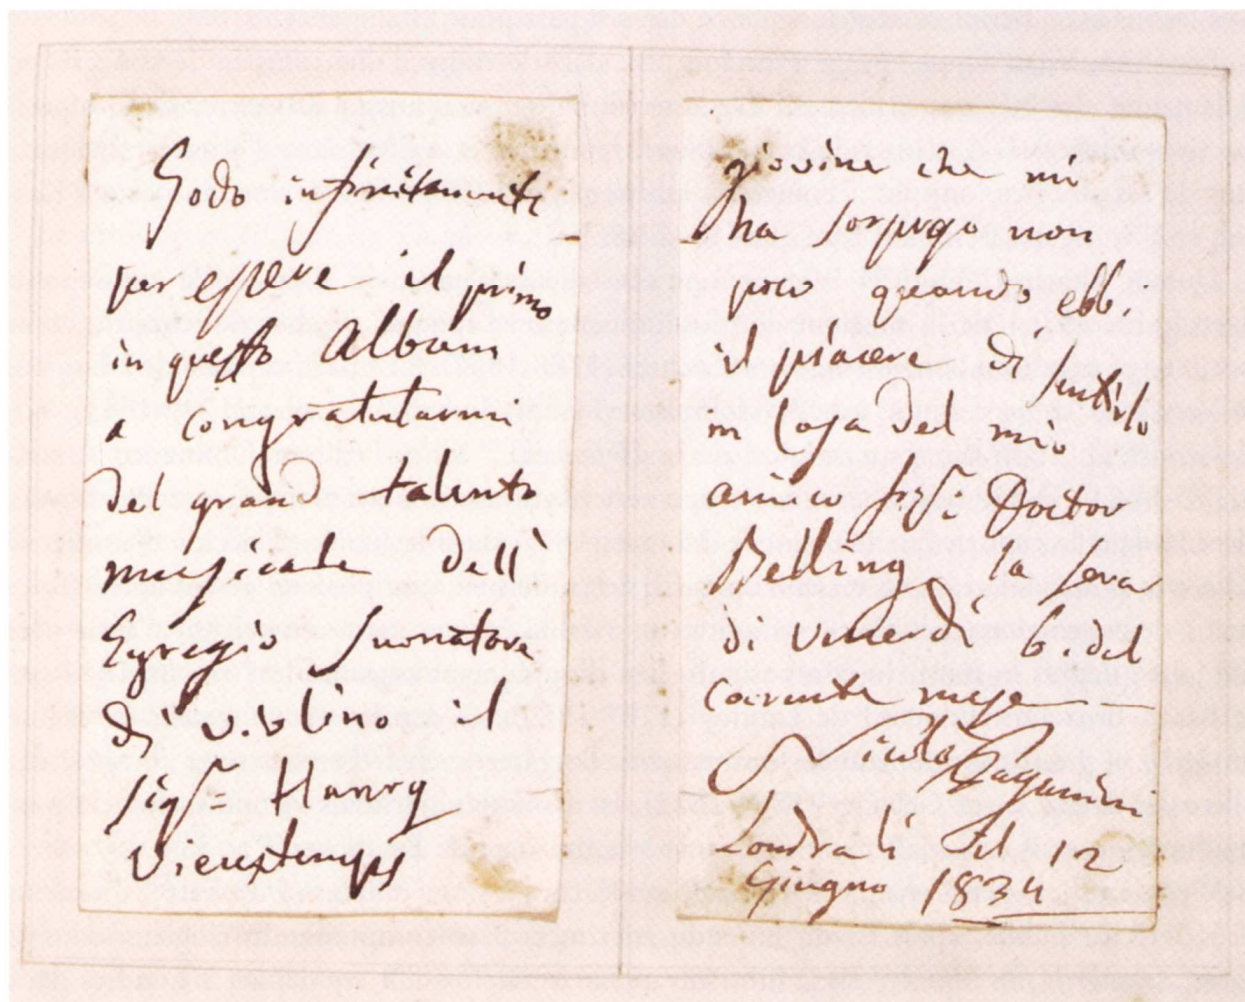 Godo infinitamente
per essere il primo
in questo Album
a congratularmi
del grande talento
musicale dell'
Egregio suonatore
di violino il
Sigr Henry
Vieuxtemps
giovine che mi
ha sorpreso non
poco quando ebbi
il piacere di sentirlo
in Casa del mio
amico Sigr Doctor
Belling la sera
di Venerdì 6. del
corrente mese
Nicolò Paganini
Londra li 12
Giugno 1834